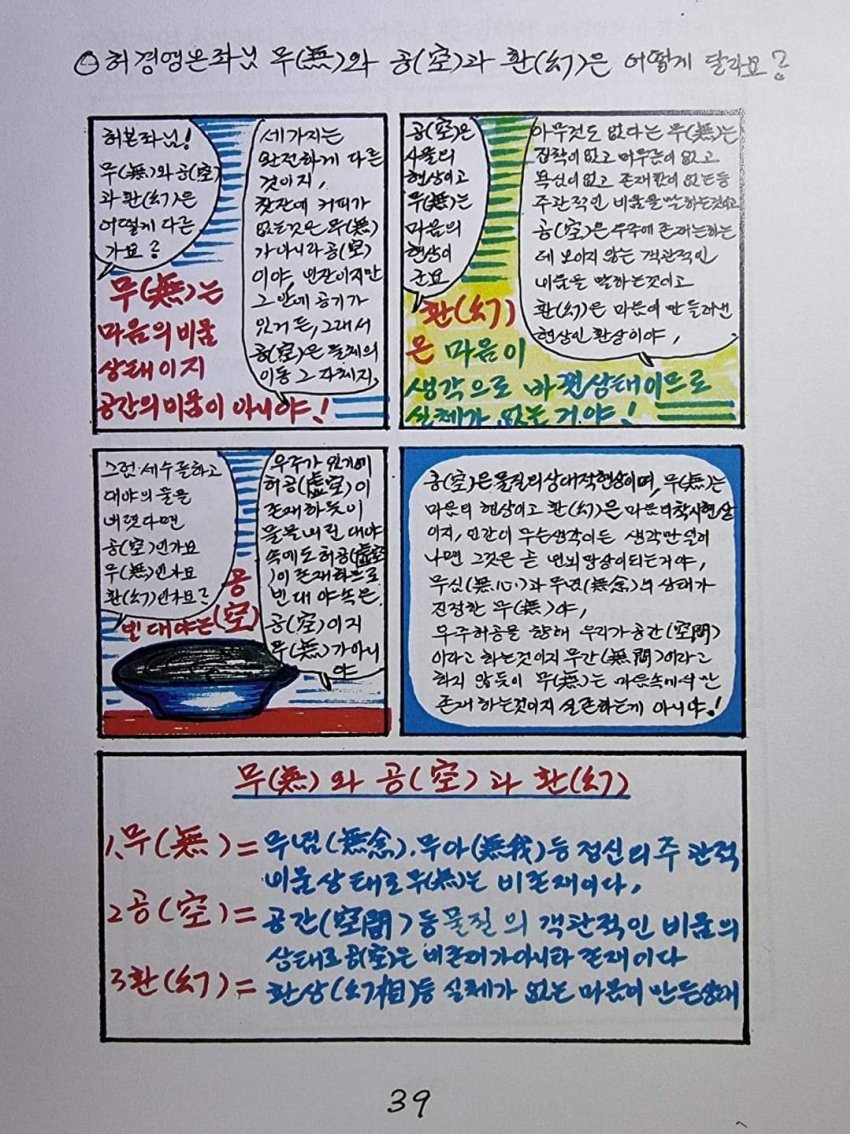 ○ 허경영본좌님 무(無)와 공(空)과 환(幻)은 어떻게 달라요?
허본좌님!
무(無)와 공(空)
과 환(幻)은
어떻게 다른
가요?
세가지는
완전하게 다른
것이지,
찻잔에 커피가
없는것은 무(無)
가 아니라 공(空)
이야, 빈잔이지만
그 안에 공기가
있거든, 그래서
공(空)은 물체의
이동 그 자체지,
무(無)는
마음의 비움
상태이지
공간의 비움이 아니야!
공(空)은
사물의
현상이고
무(無)는
마음의
현상이
군요
아무것도 없다는 무(無)는
집착이 없고 머무름이 없고
욕심이 없고 존재함이 없는등
주관적인 비움을 말하는것이고
공(空)은 우주에 존재는하는
데 보이지 않는 객관적인
비움을 말하는것이고
환(幻)은 마음이 만들어낸
현상인 환상이야,
환(幻)
은 마음이
생각으로 바뀐상태이므로
실체가 없는거야!
그럼 세수를하고
대야의 물을
버렸다면
공(空)인가요
무(無)인가요
환(幻)인가요?
우주가 있기에
허공(虛空)이
존재하듯이
물을 버린 대야
속에도 허공(虛空)
이 존재하므로
빈 대야속은
공(空)이지
무(無)가 아니
야
공
빈 대야는(空)
공(空)은 물질의 상대적현상이며, 무(無)는
마음의 현상이고 환(幻)은 마음의 착시현상
이지, 인간이 무슨생각이든 생각만 일어
나면 그것은 곧 번뇌망상이되는거야,
무심(無心)과 무념(無念)의 상태가
진정한 무(無)야,
우주허공을 향해 우리가 공간(空間)
이라고 하는것이지 무간(無間)이라고
하지 않듯이 무(無)는 마음속에서만
존재하는것이지 실존하는게 아니야!
무(無)와 공(空)과 환(幻)
1. 무(無) = 무념(無念). 무아(無我)등 정신의 주관적
비움상태로 무(無)는 비존재이다,
2 공(空) = 공간(空間)등 물질의 객관적인 비움의
상태로 공(空)은 비존재가아니라 존재이다
3 환(幻) = 환상(幻相)등 실체가 없는 마음이 만든상태
39